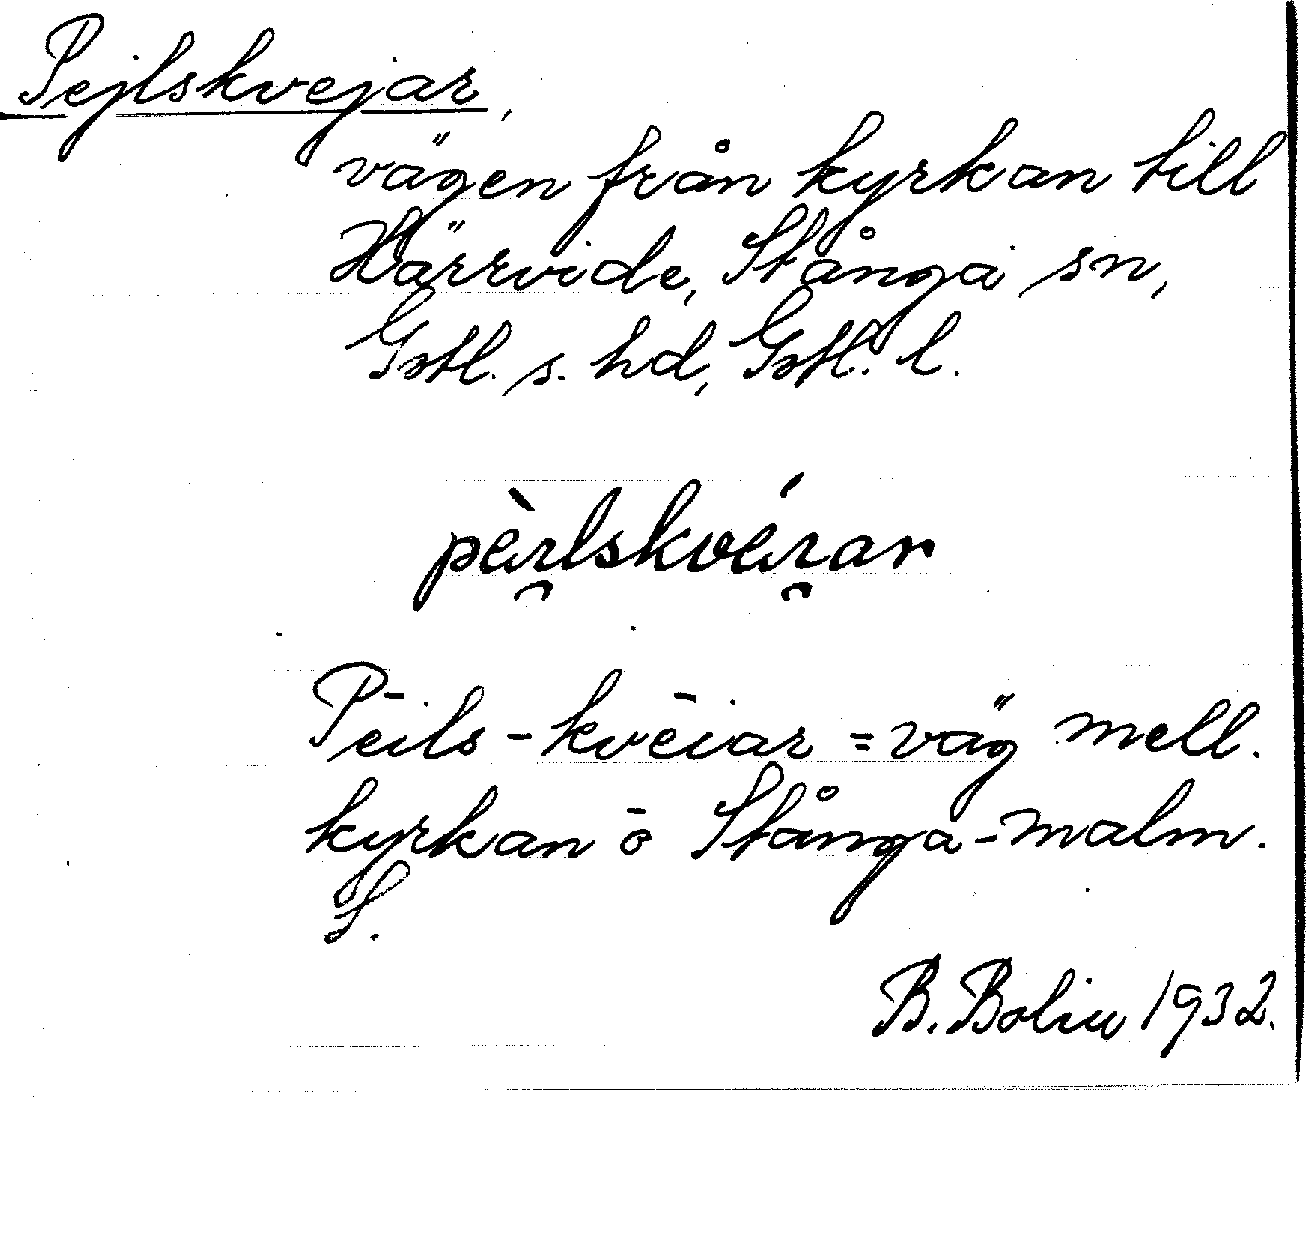 Pejlskvejar,
vägen från kyrkan till
Härrvide, Stånga sn,
Gotl. s. hd, Gotl. l.
Pēils-kvēiar = väg mell.
kyrkan ō Stånga-malm.
S.
B. Bolin 1932.